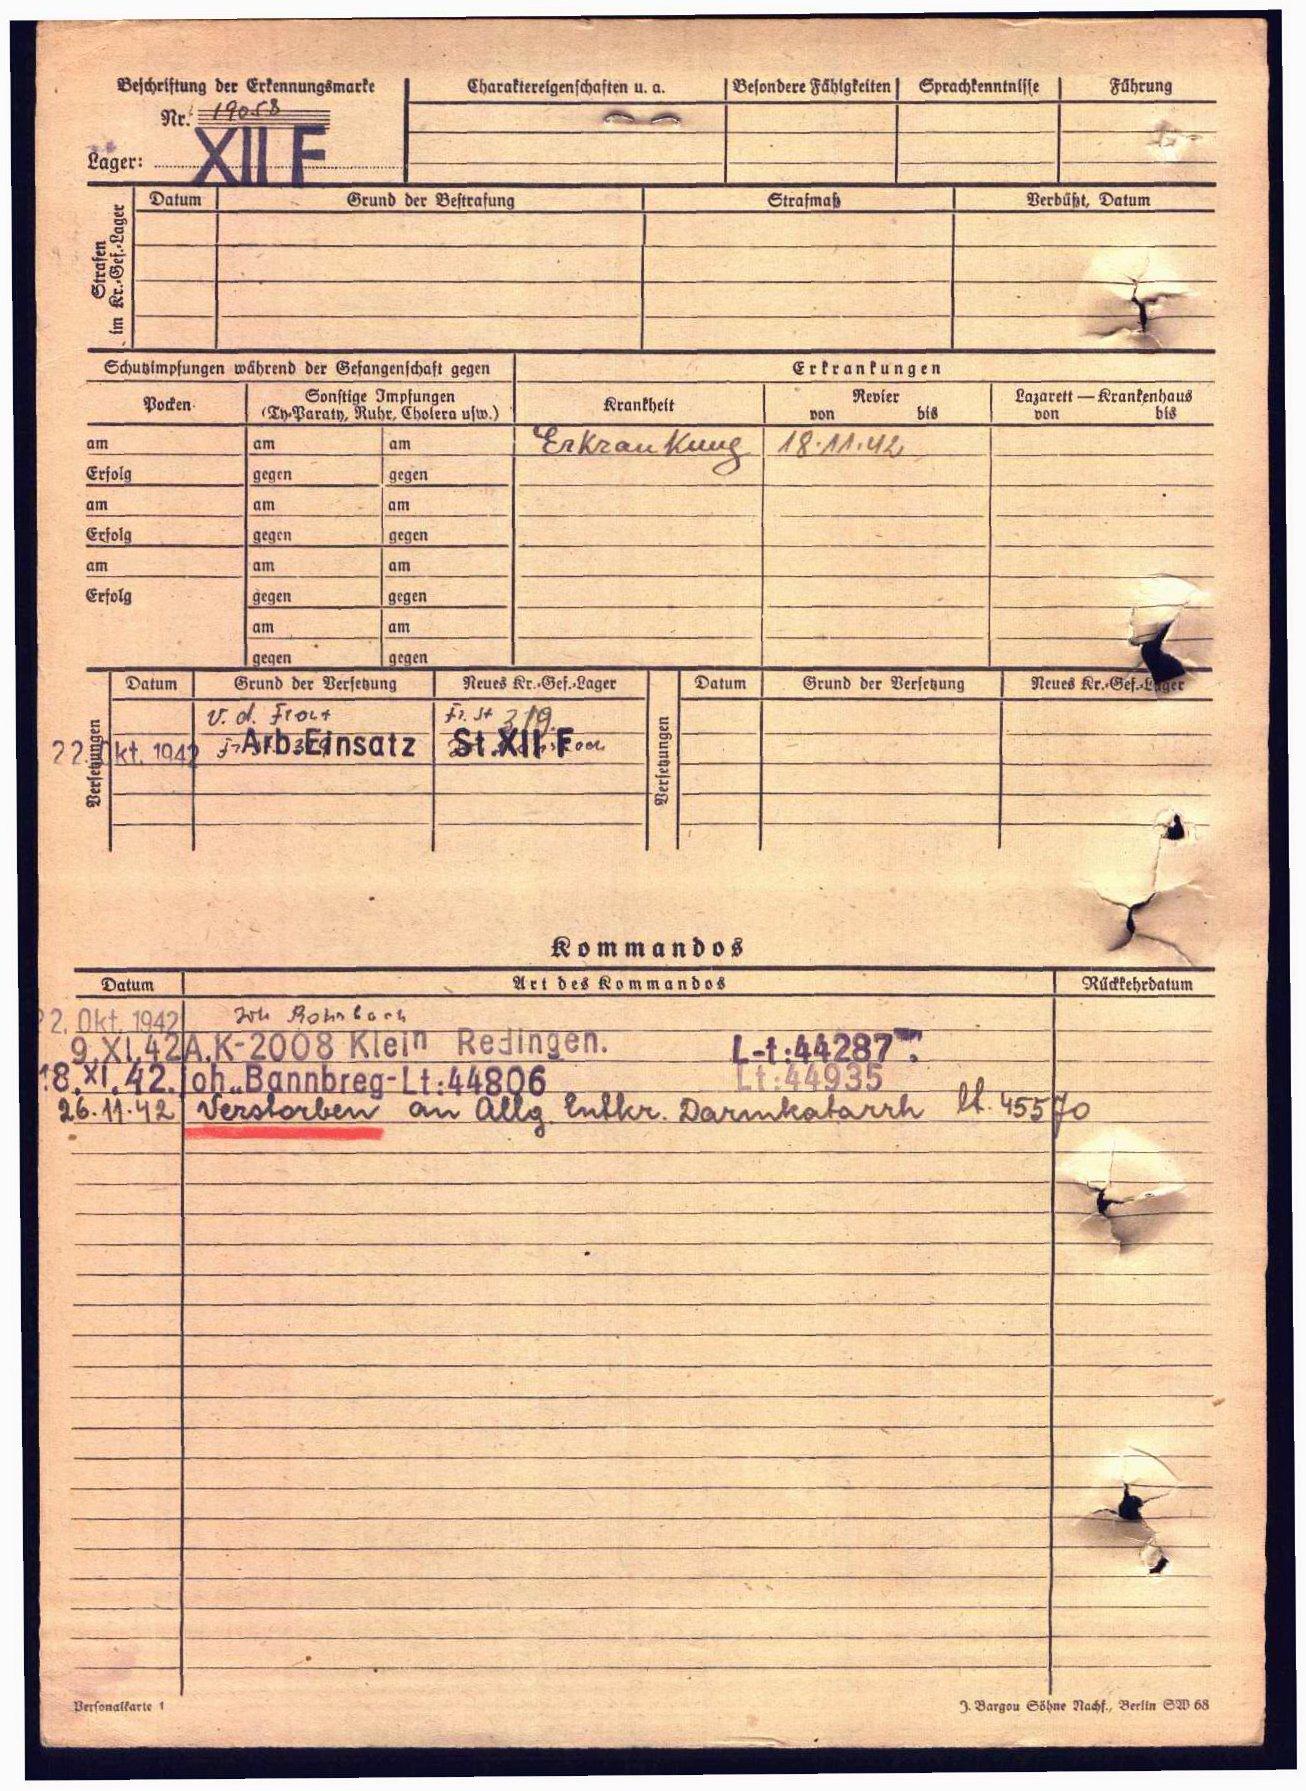 Beschriftung der Erkennungsmarke
Nr. 19058
Lager: XII F
Charaktereigenschaften u. a.
Besondere Fähigkeiten
Sprachkenntnisse
Führung
Strafen im Kr.-Gef.-Lager
Datum
Grund der Bestrafung
Strafmaß
Verbüßt, Datum
Schutzimpfungen während der Gefangenschaft gegen
Erkrankungen
Pocken
Sonstige Impfungen
(Ty-Paraty, Ruhr, Cholera usw.)
Krankheit
Revier
von bis
Lazarett — Krankenhaus
von bis
am am am Erkrankung 18.11.42
Erfolg gegen gegen
am am am
Erfolg gegen gegen
am am am
Erfolg gegen gegen
am am
gegen gegen
Versetzungen
Datum Grund der Versetzung Neues Kr.-Gef.-Lager
v. d. Front Fr. St 319
22. Okt. 1942 Arb.Einsatz St.XII F
Versetzungen
Datum Grund der Versetzung Neues Kr.-Gef.-Lager
Kommandos
Datum Art des Kommandos Rückkehrdatum
22. Okt. 1942 Joh Rohrbach
9.XI.42 A.K-2008 Klein Redingen. L-t:44287
18.XI.42. Joh„Bannbreg-Lt:44806 Lt:44935
26.11.42 Verstorben an Allg. Entkr. Darmkatarrh lt. 45570
Personalkarte 1
J. Bargou Söhne Nachf., Berlin SW 68